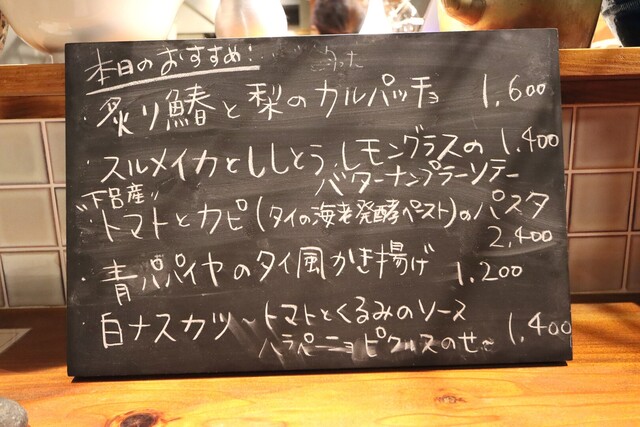 本日のおすすめ!
・炙り鰆と梨のカルパッチョ 1,600
・スルメイカとししとう、レモングラスの 1,400
バターナンプラーソテー
"下呂産"
・トマトとカピ(タイの海老発酵ペースト)のパスタ
2,400
・青パパイヤのタイ風かき揚げ 1,200
・白ナスカツ~トマトとくるみのソース
ハラペーニョピクルスのせ~ 1,400